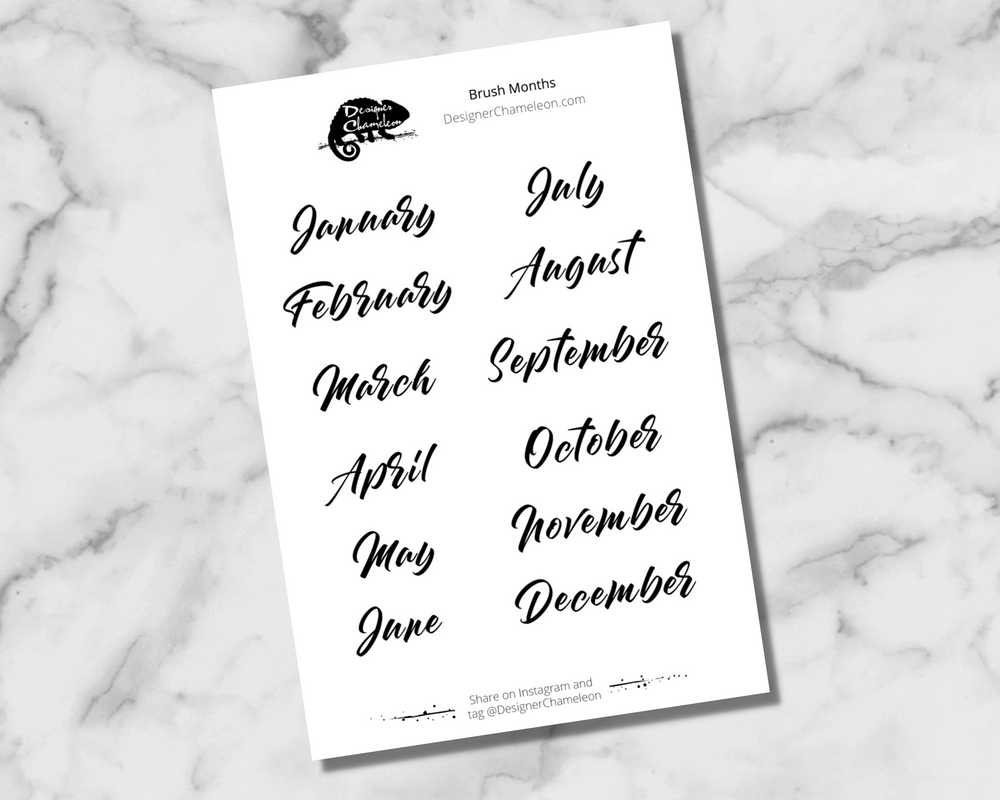 Designer
Chameleon
Brush Months
DesignerChameleon.com
January
February
March
April
May
June
July
August
September
October
November
December
Share on Instagram and
tag @DesignerChameleon